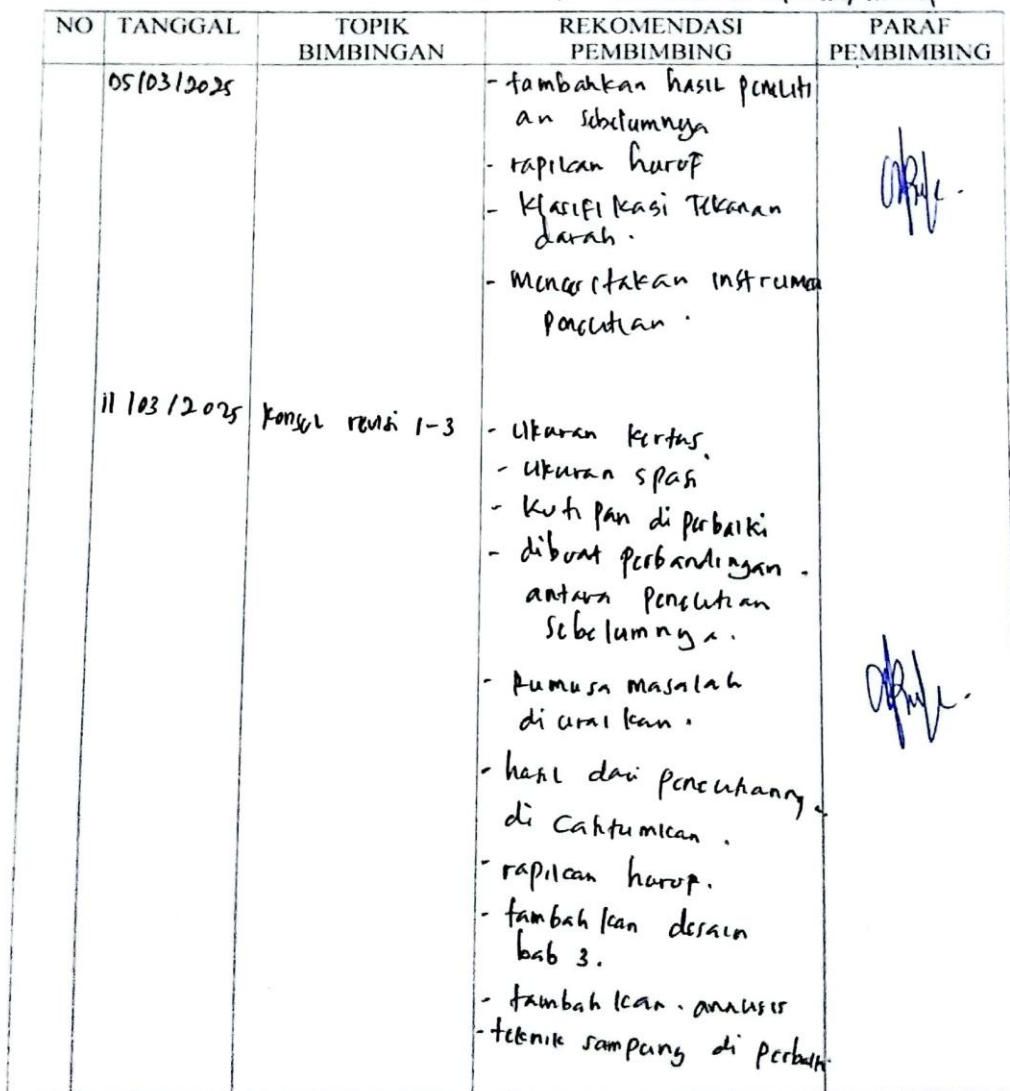 NO TANGGAL TOPIK BIMBINGAN REKOMENDASI PEMBIMBING PARAF PEMBIMBING
05/03/2025
- tambahkan hasil peneliti
an sebelumnya
- rapikan huruf
- klasifikasi Tekanan
darah.
- Menceritakan instrumen
penelitian.
11/03/2025 Konsul revisi 1-3
- Ukuran kertas.
- Ukuran spasi
- Kutipan di perbaiki
- dibuat perbandingan.
antara Penelitian
Sebelumnya.
- Rumusa masalah
di uraikan.
- hasil dari penelitiannya
di Cantumkan.
- rapikan huruf.
- tambahkan desain
bab 3.
- tambahkan. analisis
- teknik sampling di perbaiki